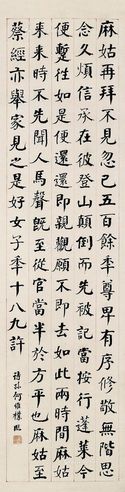 麻姑再拜不見忽已五百餘年尊卑有序修敬無階思
念久煩信承在彼登山顛倒而先被記當按行蓬萊今
便蹔往如是便還還即親觀願不即去如此兩時間麻姑
來來時不先聞人馬聲既至從官當半於方平也麻姑至
蔡經亦舉家見之是好女子年十八九許
何維樸臨